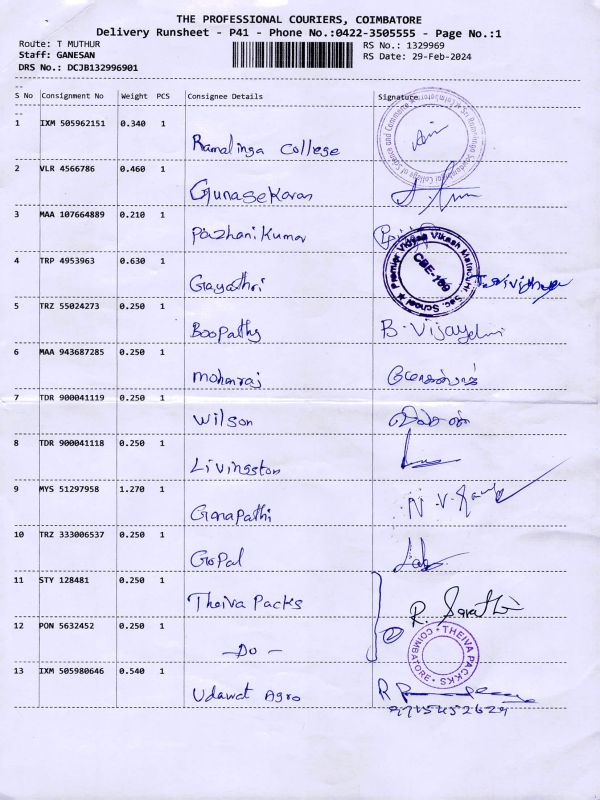 THE PROFESSIONAL COURIERS, COIMBATORE
Delivery Runsheet - P41 - Phone No.:0422-3505555 - Page No.:1
Route: T MUTHUR
RS No.: 1329969
Staff: GANESAN
RS Date: 29-Feb-2024
DRS No.: DCJB132996901
S No Consignment No Weight PCS Consignee Details Signature
1 IXM 505962151 0.340 1 Ramalinga College
2 VLR 4566786 0.460 1 Gunasekaran
3 MAA 107664889 0.210 1 Pazhani Kumar
4 TRP 4953963 0.630 1 Gayathri
Premier Vidhya Vikash Matric. Hr. Sec. School ★
CBE-109
5 TRZ 55024273 0.250 1 Boopathy B. Vijay
6 MAA 943687285 0.250 1 Mohanraj மோகன்ராஜ்
7 TDR 900041119 0.250 1 Wilson வில்சன்
8 TDR 900041118 0.250 1 Livingston
9 MYS 51297958 1.270 1 Ganapathi N.V.
10 TRZ 333006537 0.250 1 Gopal
11 STY 128481 0.250 1 Theiva Packs R. Sarathi
12 PON 5632452 0.250 1 -Do-
THEIVA PACKS
COIMBATORE
13 IXM 505980646 0.540 1 Udawat Agro